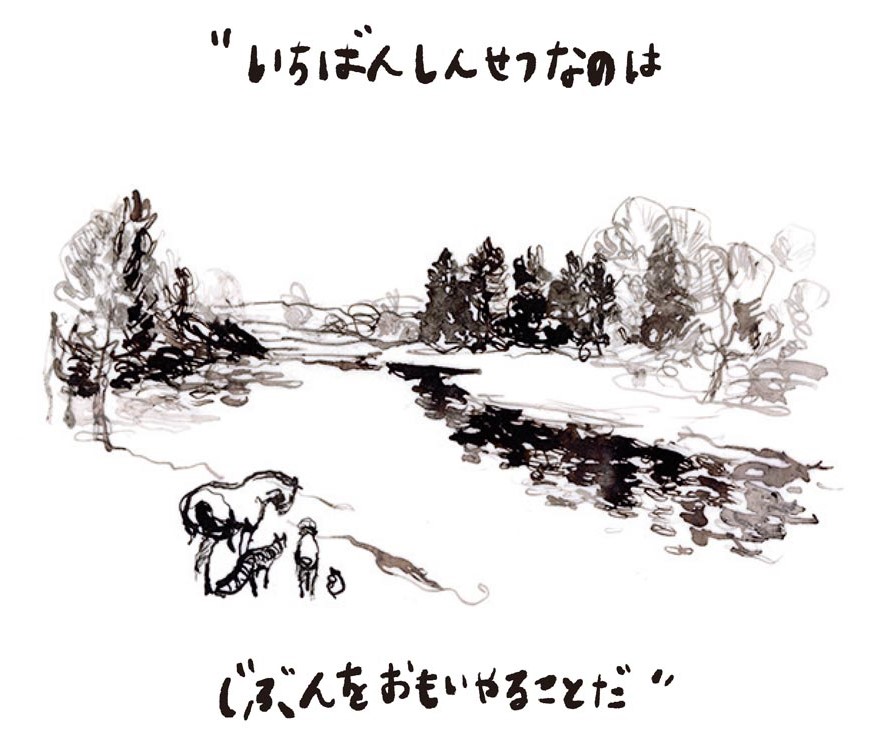 "いちばんしんせつなのは
じぶんをおもいやることだ"